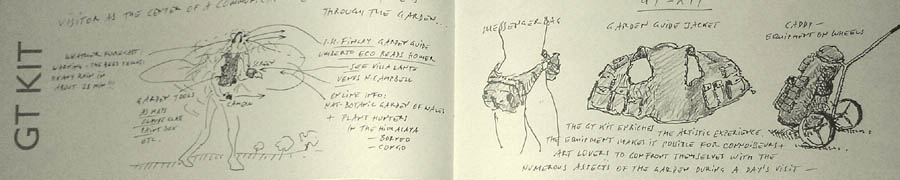 GT KIT
VISITOR AS THE CENTER OF A
THROUGH THE GARDEN...
WEATHER FORECAST:
WARNING - THE
HEAVY RAIN IN
ABOUT 28 MIN!!!
GARDEN TOOLS
AS MAPS
ETC.
SCREEN
CAMERA
I.H. FINLAY GARDEN GUIDE
UMBERTO ECO READS HOMER
SEE VILLA LANTE
VENUS N. CAMPBELL
ON LINE INFO:
NAT. BOTANIC GARDEN OF WALES
+ PLANT HUNTERS
IN THE HIMALAYA
— BORNEO
— CONGO
GT-KIT
MESSENGER BAG
GARDEN GUIDE JACKET
CADDY —
EQUIPMENT ON WHEELS
THE GT KIT ENRICHES THE ARTISTIC EXPERIENCE.
THE EQUIPMENT MAKES IT POSSIBLE FOR CONNOISEURS +
ART LOVERS TO CONFRONT THEMSELVES WITH THE
NUMEROUS ASPECTS OF THE GARDEN DURING A DAY'S VISIT —